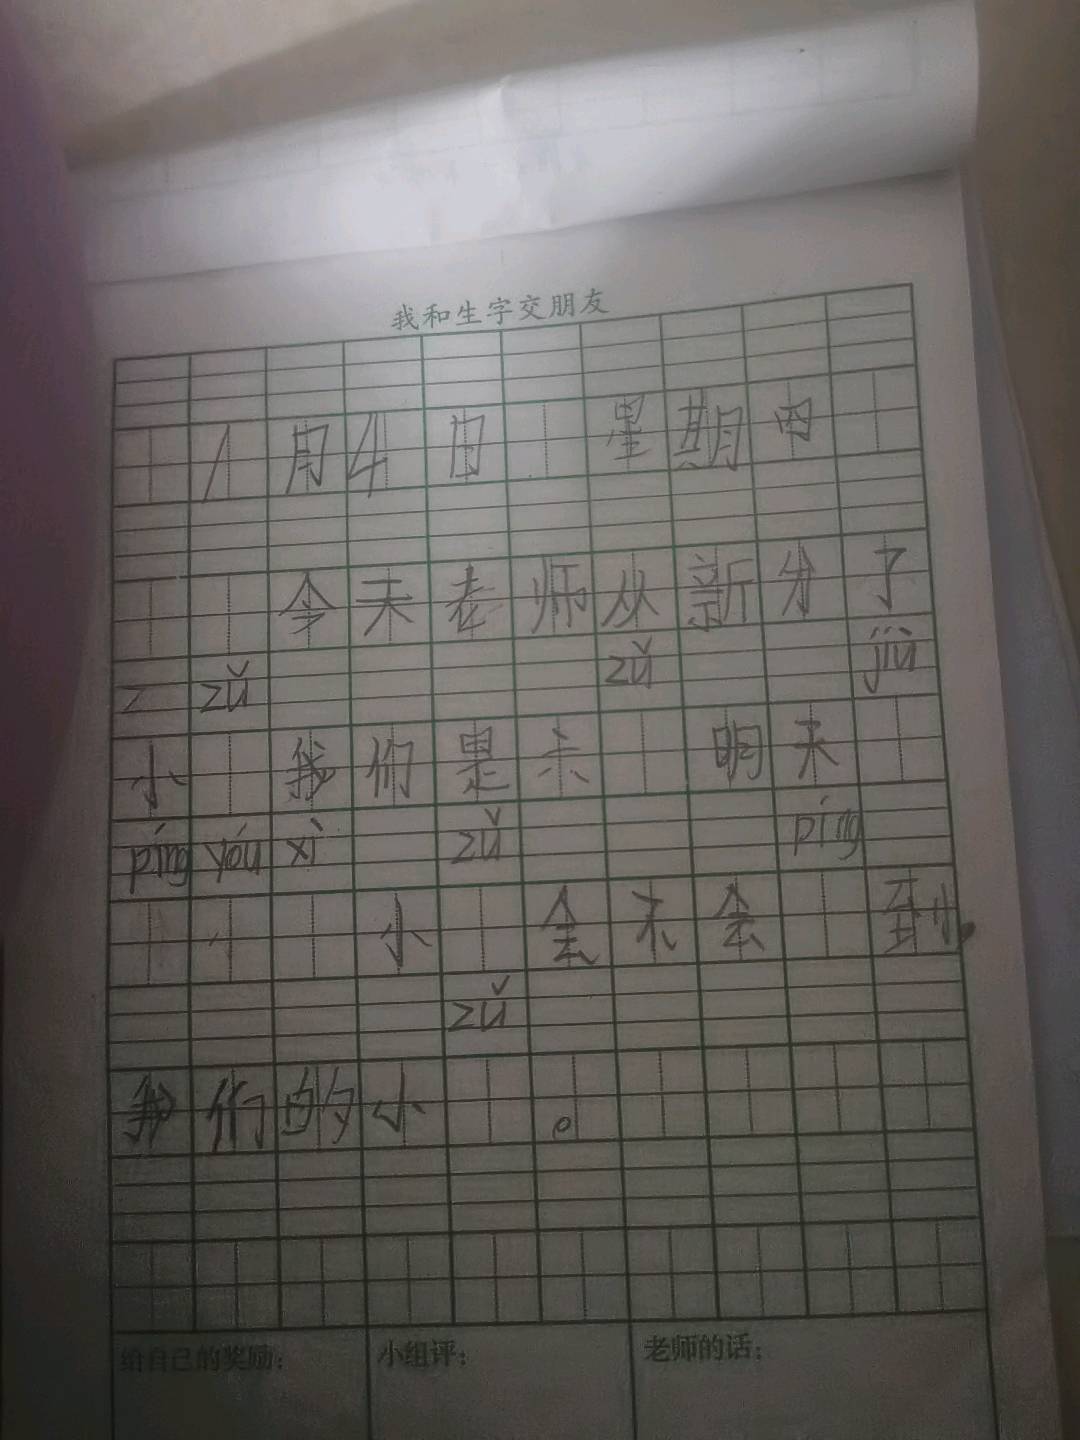 我和生字交朋友
1月4日 星期四
今天老师从新分了
z zǔ zǔ jiù
小 我们是 未 明天
píng yóu xì zǔ píng
小 会 未 会 到
zǔ
我们的小 。
给自己的奖励： 小组评： 老师的话：